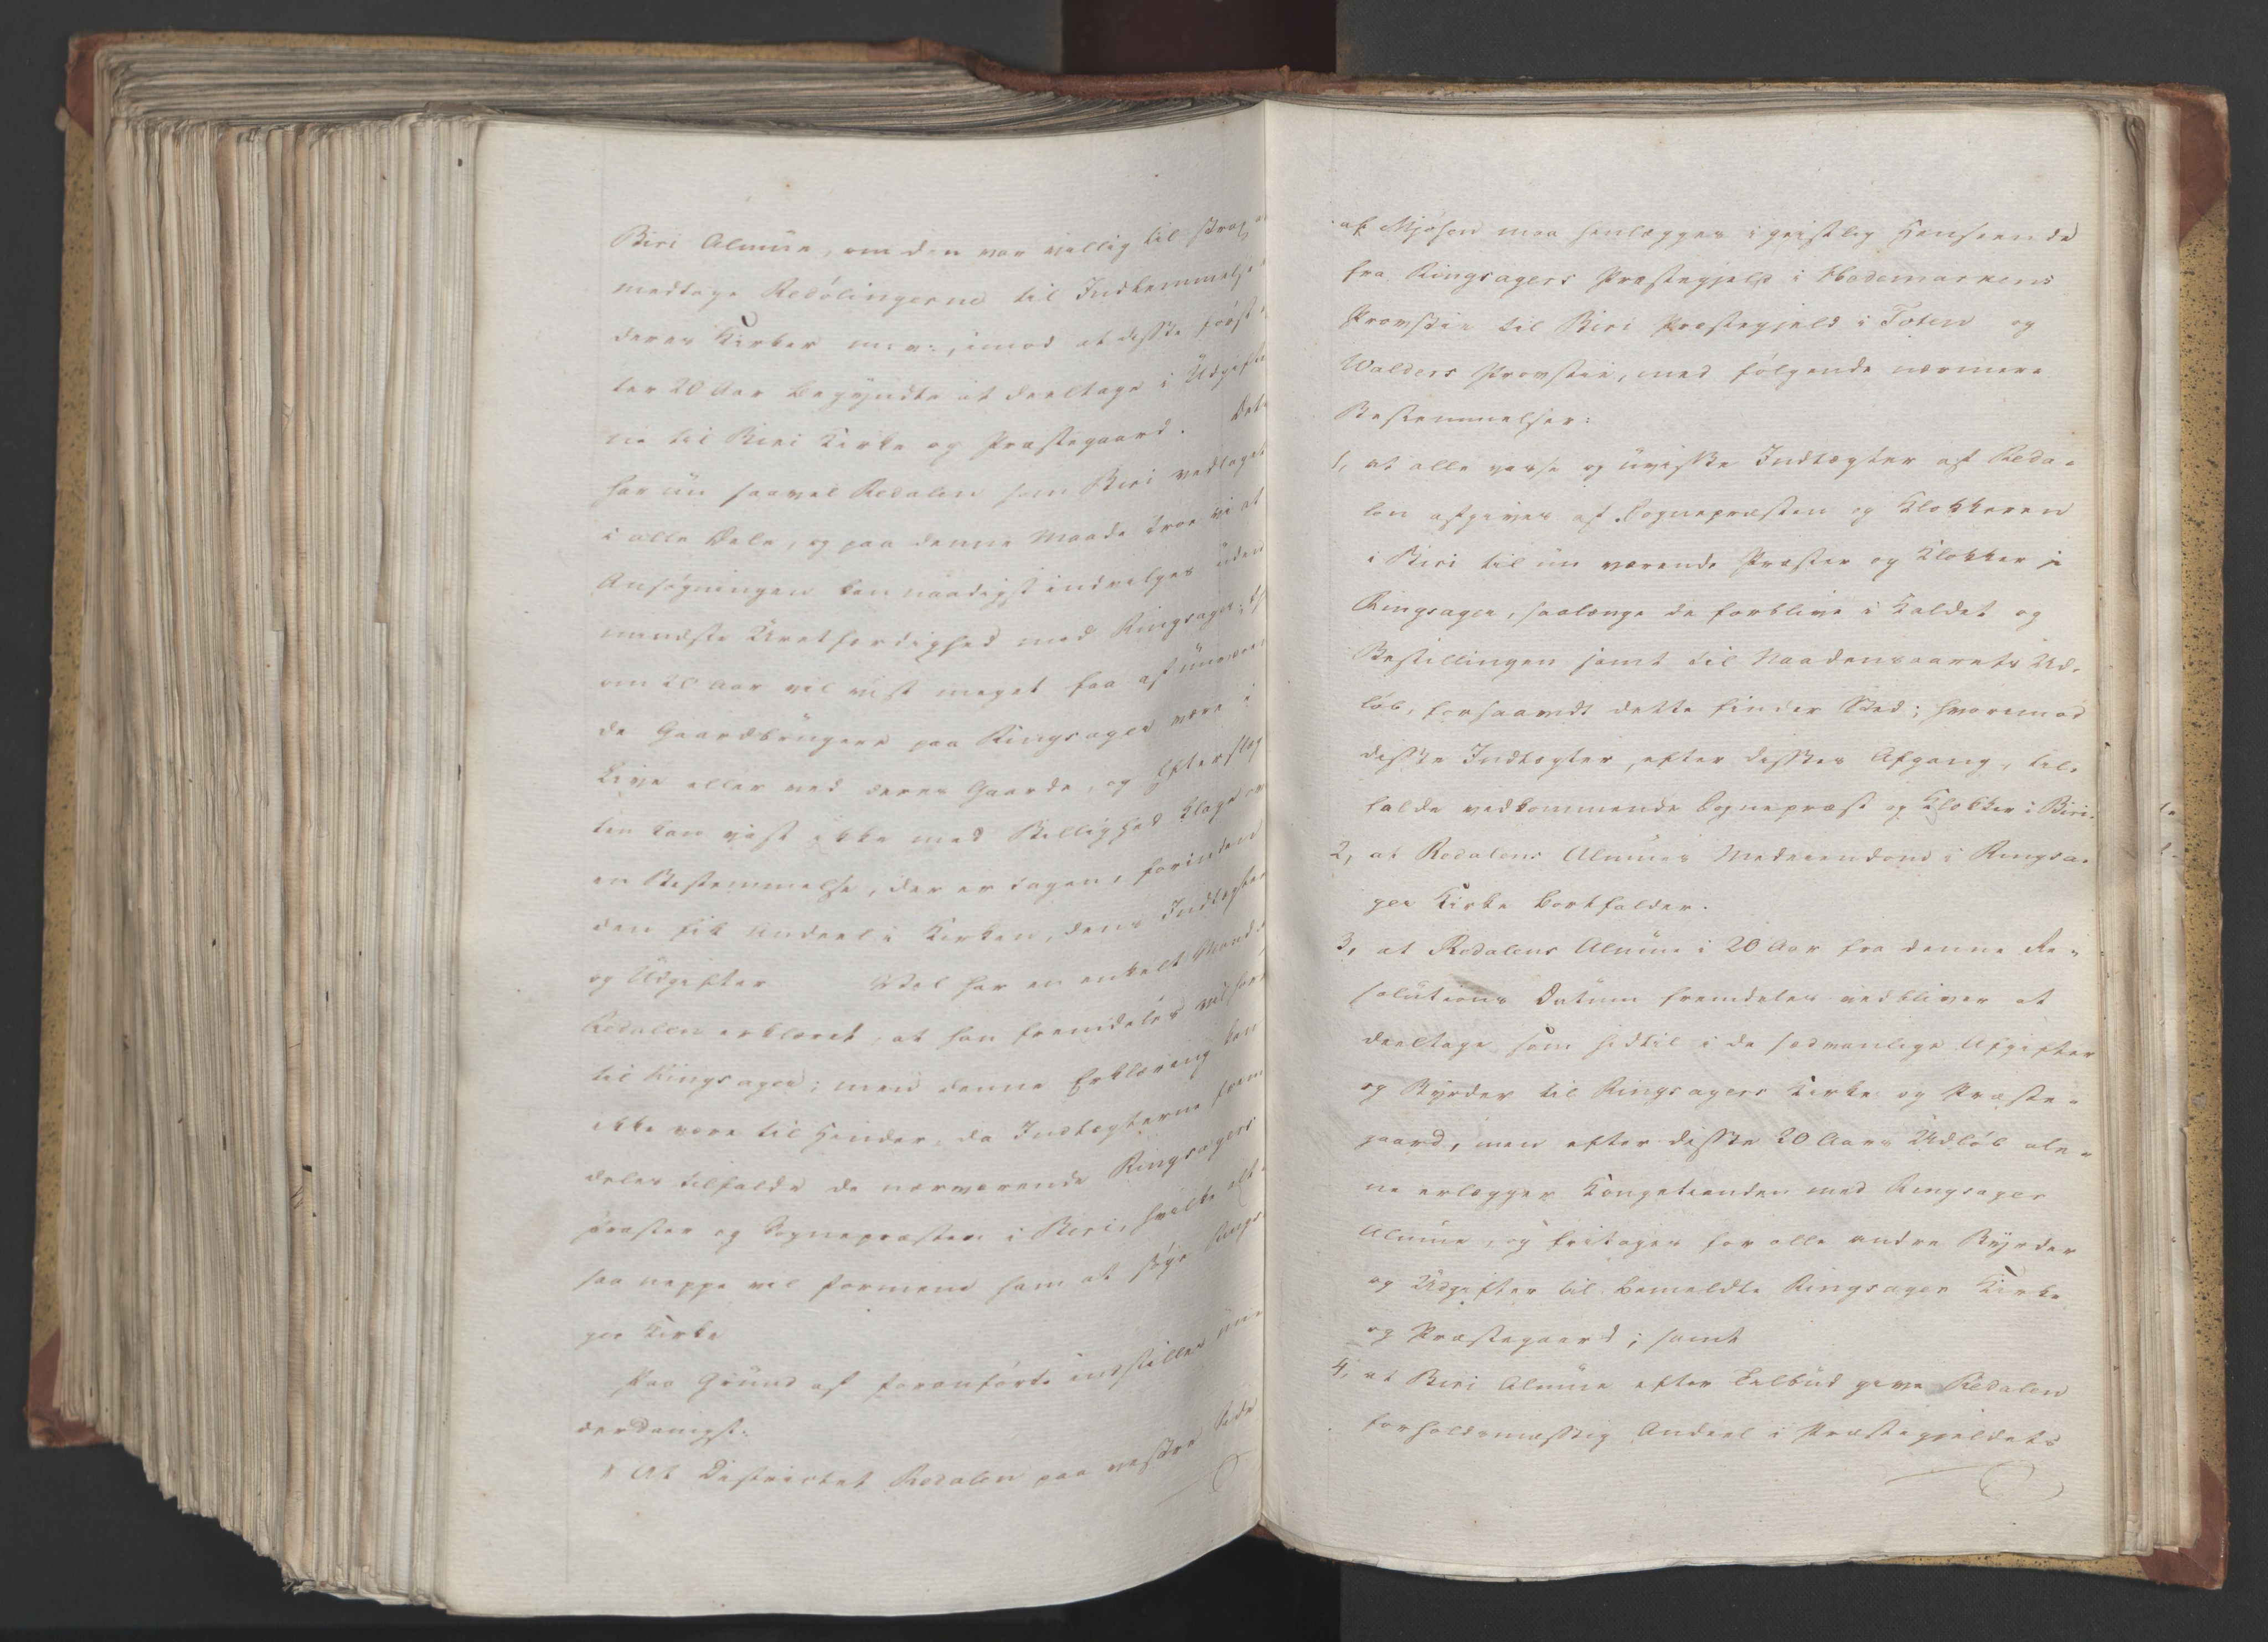 Biri Almue, om den var villig til strax at
medtage Redölingerne til Indlemmelse i
deres Kirker m.v., imod at disse först ef-
ter 20 Aar begyndte at deeltage i Udgifter-
ne til Biri Kirke og Præstegaard. Dette
har nu saavel Redalen som Biri vedtaget
i alle Dele, og paa denne Maade troe vi at
Ansögningen kan naadigst indvilges uden
mindste Uretfærdighed mod Ringsager; thi
om 20 Aar vil vist meget faa af nuværen-
de Gaardbrugere paa Ringsager være i
Live eller ved deres Gaarde, og Efterslæg-
ten kan vist ikke med Billighed klage over
en Bestemmelse, der er tagen, forinden
den fik Andeel i Kirken, dens Indtægter
og Udgifter Vel har en enkelt Mand i
Redalen erklæret, at han fremdeles vil höre
til Ringsager; men denne Erklæring kan
ikke være til Hinder, da Indtægterne frem
deles tilfalde de nærværende Ringsagers
Præster og Sognepræsten i Biri, hvilke alt-
saa neppe vil formene ham at söge Ringsa-
ger Kirke
Paa Grund af foranförte indstilles un-
derdanigst:
At Districtet Redalen paa vestre Side
af Mjösen maa henlægges i geistlig Henseende
fra Ringsagers Præstegjeld i Hedemarkens
Provstie til Biri Præstegjeld i Toten og
Walders Provstie, med fölgende nærmere
Bestemmelser:
1, at alle visse og uvisse Indtægter af Reda-
len afgives af Sognepræsten og Klokkeren
i Biri til nu værende Præster og Klokker i
Ringsager, saalænge de forblive i Kaldet og
Bestillingen samt til Naadensaarets Ud-
löb, forsaavidt dette finder Sted; hvorimod
disse Indtægter, efter disses Afgang, til-
falde vedkommende Sognepræst og Klokker i Biri.
2, at Redalens Almues Medeiendom i Ringsa-
ger Kirke bortfalder.
3, at Redalens Almue i 20 Aar fra denne Re-
solutions Datum fremdeles vedbliver at
deeltage som hidtil i de sædvanlige Afgifter
og Byrder til Ringsagers Kirke og Præste-
gaard, men efter disse 20 Aars Udlöb ale-
ne erlægger Kongetienden med Ringsager
Almue, og fritages for alle andre Byrder
og Udgifter til bemeldte Ringsager Kirke
og Præstegaard; samt
4, at Biri Almue efter Tilbud give Redalen
forholdsmæssig Andeel i Præstegjeldets